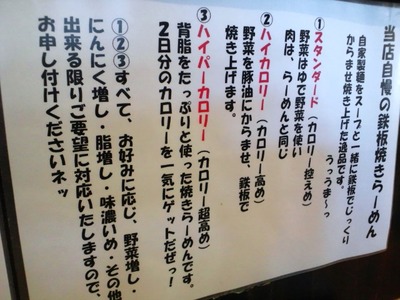 当店自慢の鉄板焼きらーめん
自家製麺をスープと一緒に鉄板でじっくり
からませ焼き上げた逸品です。
うっうま~っ
①スタンダード(カロリー控えめ)
野菜はゆで野菜を使い
肉は、らーめんと同じ
②ハイカロリー(カロリー高め)
野菜を豚油にからませ、鉄板で
焼き上げます。
③ハイパーカロリー(カロリー超高め)
背脂をたっぷりと使った焼きらーめんです。
2日分のカロリーを一気にゲットだぜっ!
①②③すべて、お好みに応じ、野菜増し・
にんにく増し・脂増し・味濃いめ・その他
出来る限りご要望に対応いたしますので、
お申し付けくださいネッ